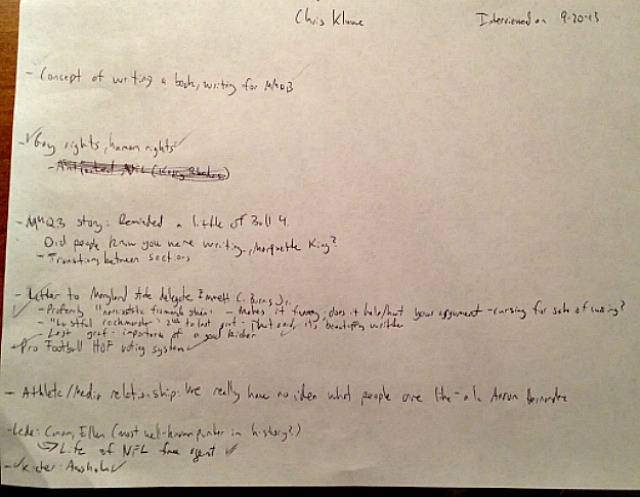 Chris Kluwe
Interviewed on 9-20-13
- Concept of writing a book, writing for MMQB
- Gay rights, human rights
- MMQB story: Reminded a little of Ball 4.
Did people know you were writing, Marquette King?
- Transitions between sections
- Letter to Maryland state delegate Emmett C. Burns Jr.
- Profanity "narcissistic fromunda stain" - Makes it funny - does it help/hurt your argument - cursing for sake of cursing?
- "Lustful cockmonster" 2nd to last graf - that said, it's beautifully written
- Last graf - importance of a good kicker
- Pro Football HOF voting system
- Athlete/Media relationship: We really have no idea what people are like - a la Aaron Hernandez
- Lede: Conan, Ellen (most well-known punter in history?)
Life of NFL free agent
- Kicker: